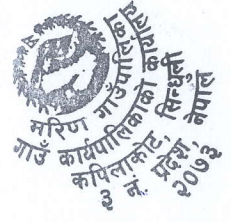 मरिण गाउँपालिका
गाउँ कार्यपालिकाको कार्यालय
कपिलाकोट, सिन्धुली
३ नं. प्रदेश, नेपाल
२०७३